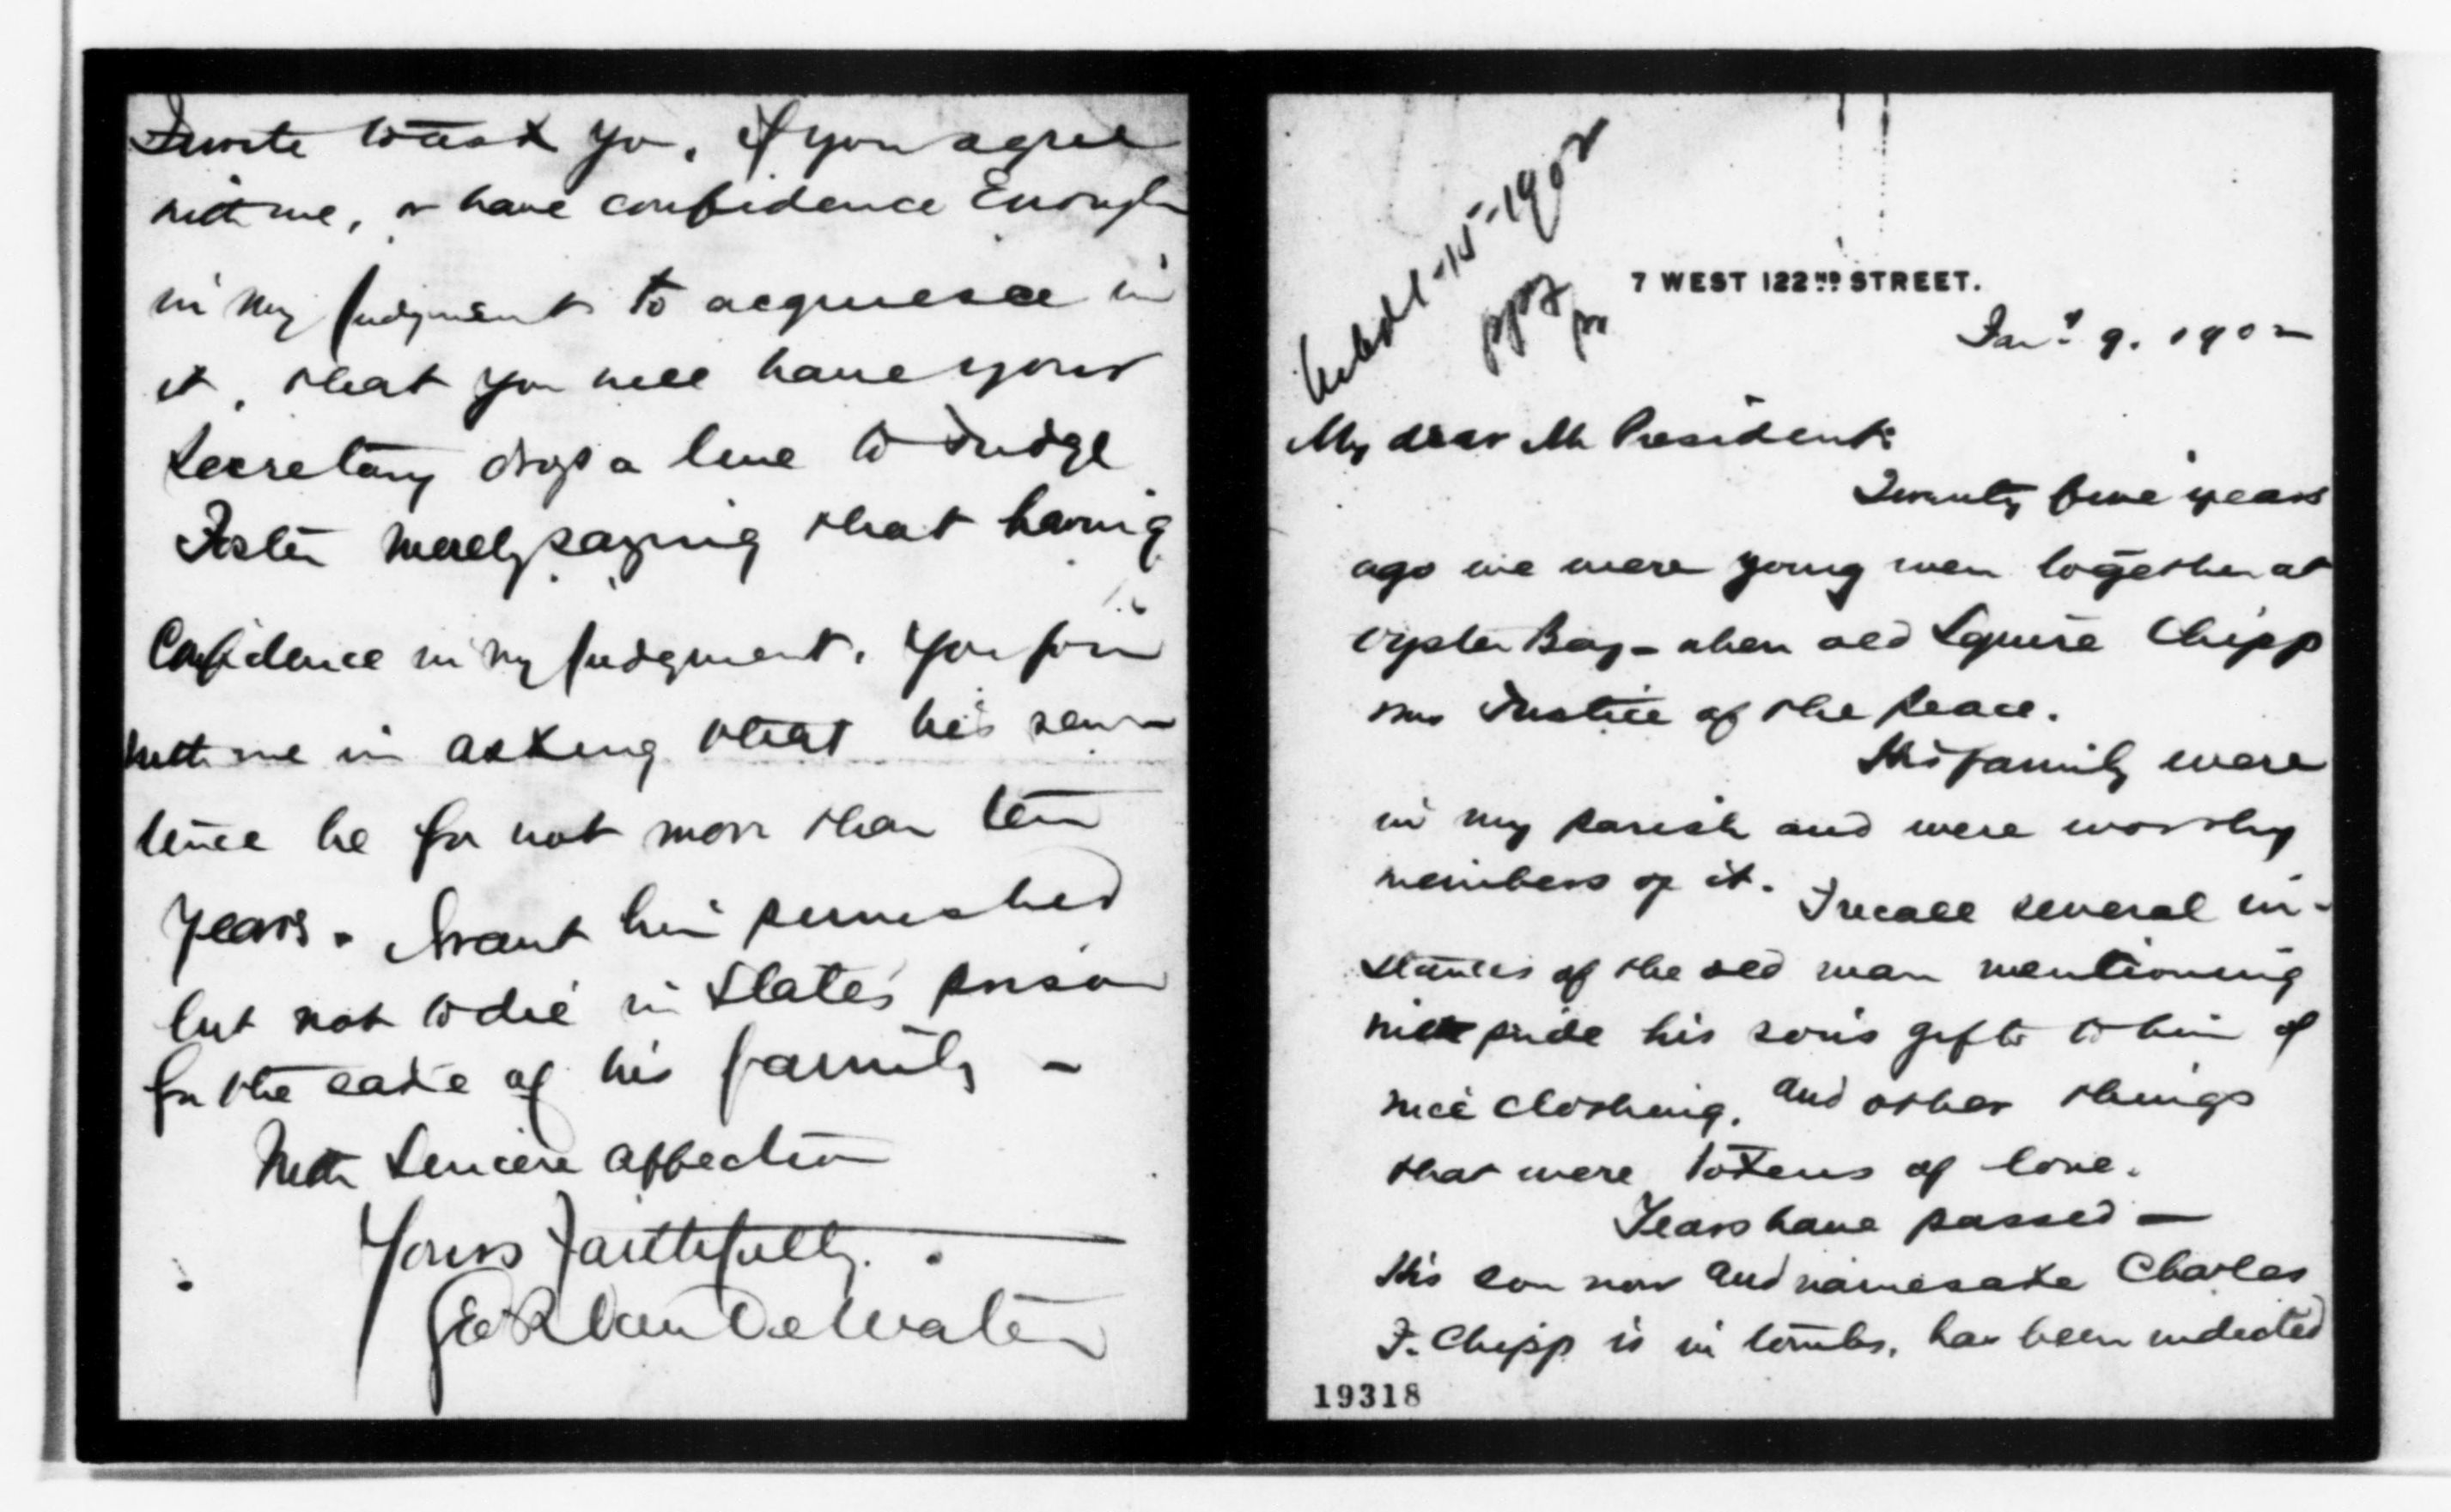 I write to ask you, if you agree
with me, or have confidence Enough
in my judgment to acquiesce in
it, that you will have your
Secretary drop a line to Judge
Foster merely saying that having
Confidence in my judgment, you join
with me in asking that his sen-
tence be for not more than ten
years. I want him punished
but not to die in State's prison
for the sake of his family -
With Sincere affection
Yours Faithfully.
Geo R Van De Water
1-15-1902
7 WEST 122ND STREET.
Jany 9. 1902
My dear Mr President:
Twenty five years
ago we were young men together at
Oyster Bay - when old Squire Chipp
was Justice of the Peace.
His family were
in my parish and were worthy
members of it. I recall several in-
stances of the old man mentioning
with pride his son's gifts to him of
nice clothing, and other things
that were tokens of love.
Years have passed -
His son now and namesake Charles
F. Chipp is in tombs, has been indicted
19318